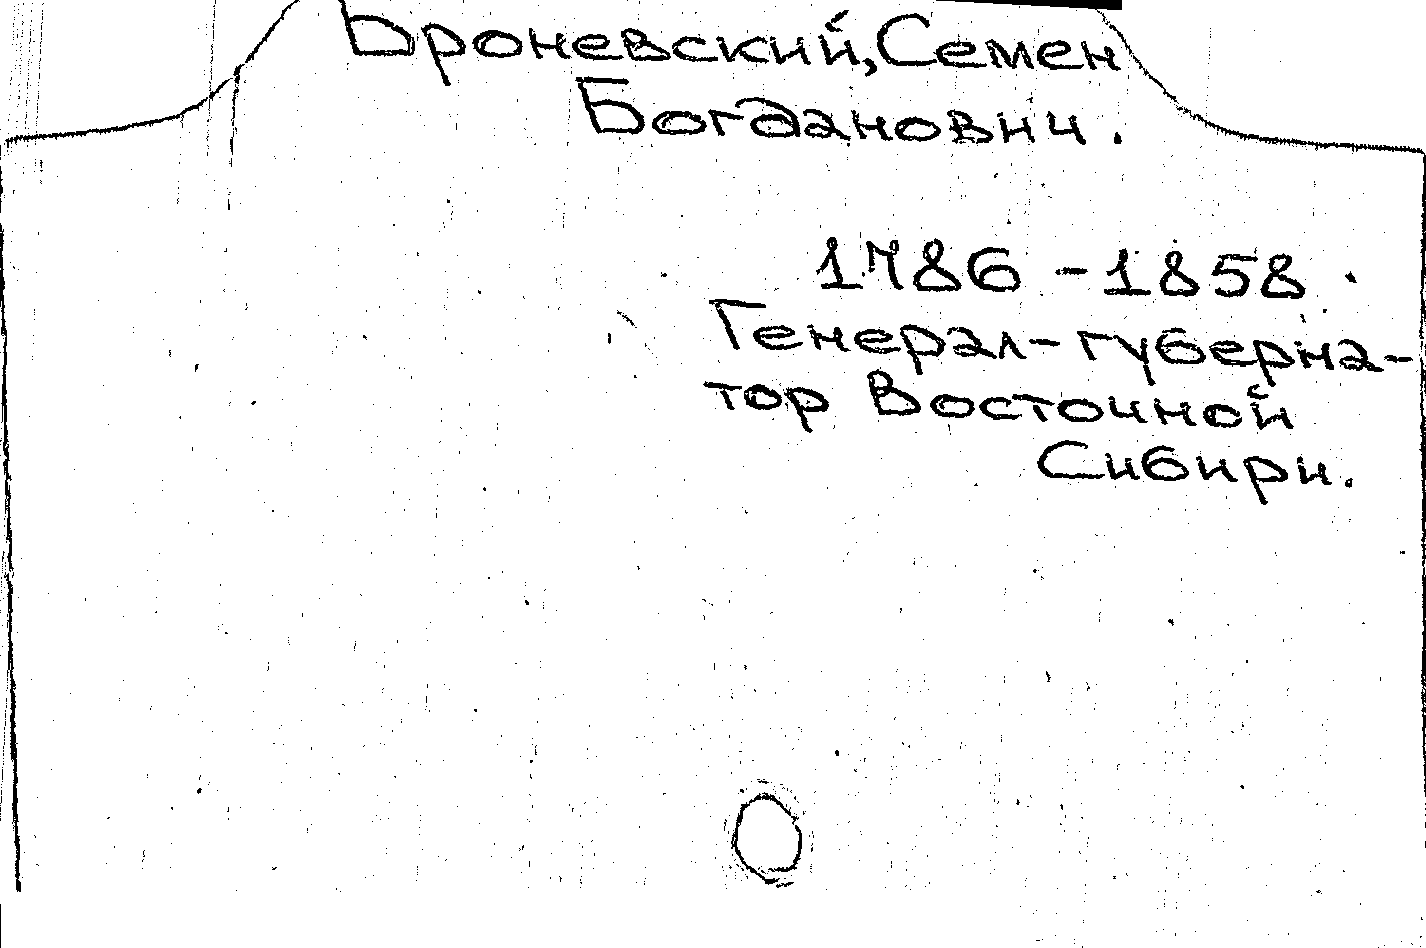 Броневский, Семен
Богданович.
1786 - 1858.
Генерал-губерна-
тор Восточной
Сибири.